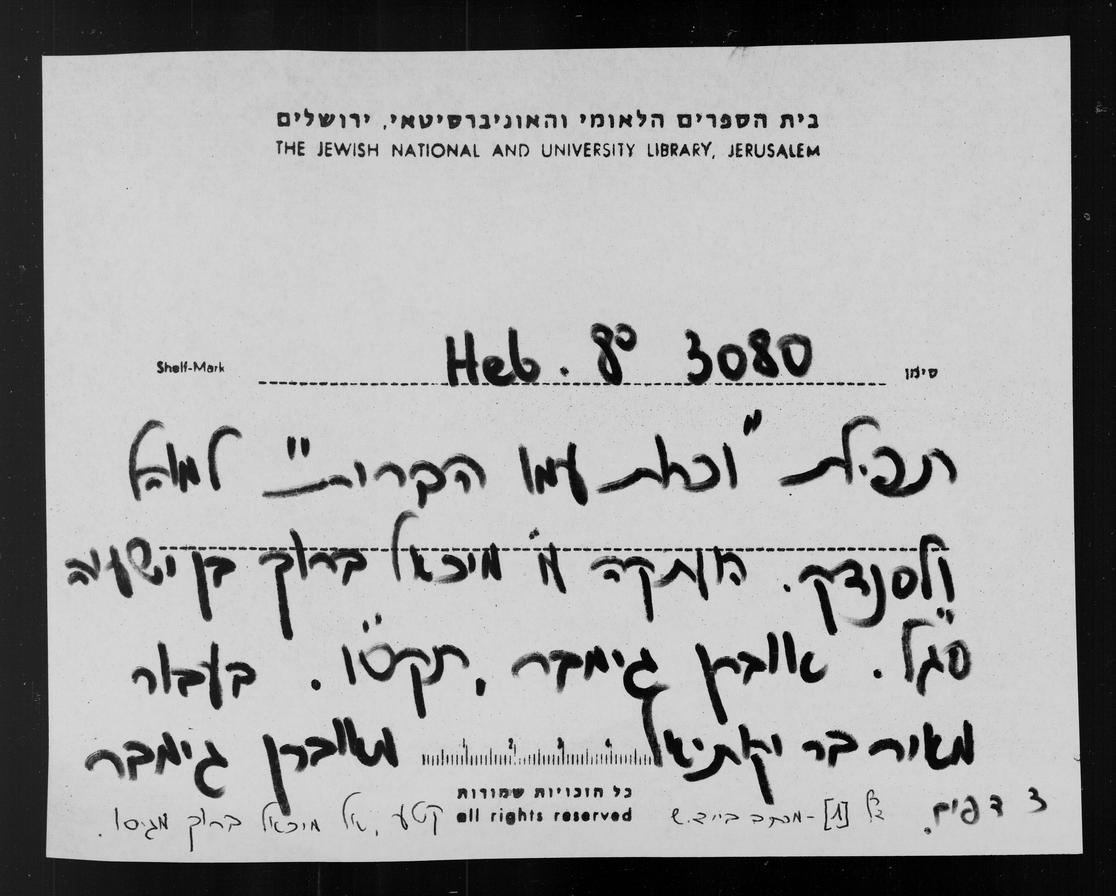 בית הספרים הלאומי והאוניברסיטאי, ירושלים
THE JEWISH NATIONAL AND UNIVERSITY LIBRARY, JERUSALEM
Shelf-Mark Heb. 8° 3080 סימן
תפילת "וכרות עמו הברית" למוהל
ולסנדק. העתקה מ' מיכאל ברוך בן ישעיה
סג"ל. אוברן גימבר, תקס"ו. בעבור
מאיר בר יקותיאל מאוברן גימבר
1 2 3 4
כל הזכויות שמורות
all rights reserved
3 דפים. [1] - מכתב ביידיש קטע, של מיכאל ברוך